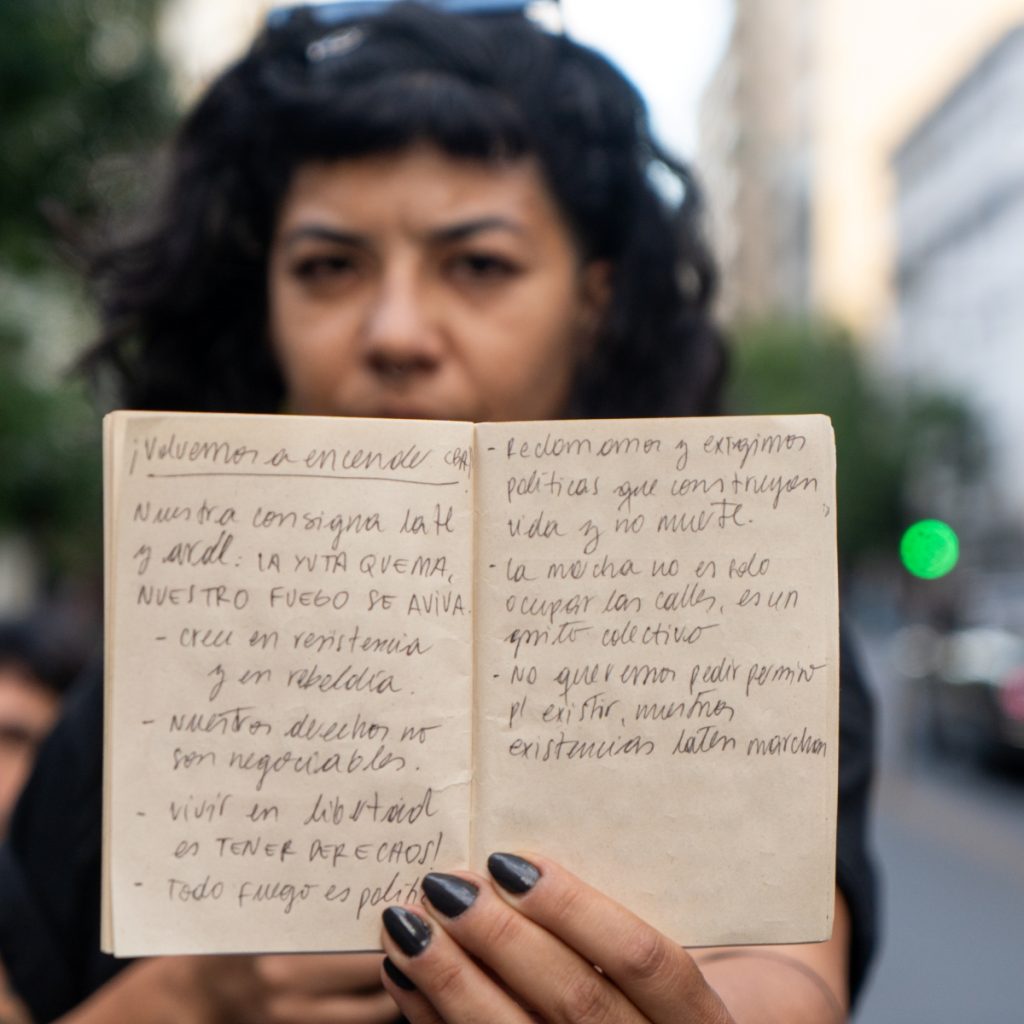 ¡Volvemos a encender CBA!
Nuestra consigna late
y arde: LA YUTA QUEMA,
NUESTRO FUEGO SE AVIVA.
- creer en resistencia
y en rebeldía.
- Nuestros derechos no
son negociables.
- vivir en libertad
es TENER DERECHOS!
- TODO fuego es políti
- Reclamamos y exigimos
políticas que construyan
vida y no muerte.
- La marcha no es solo
ocupar las calles, es un
grito colectivo
- No queremos pedir permiso
p/ existir, nuestras
existencias laten marchan